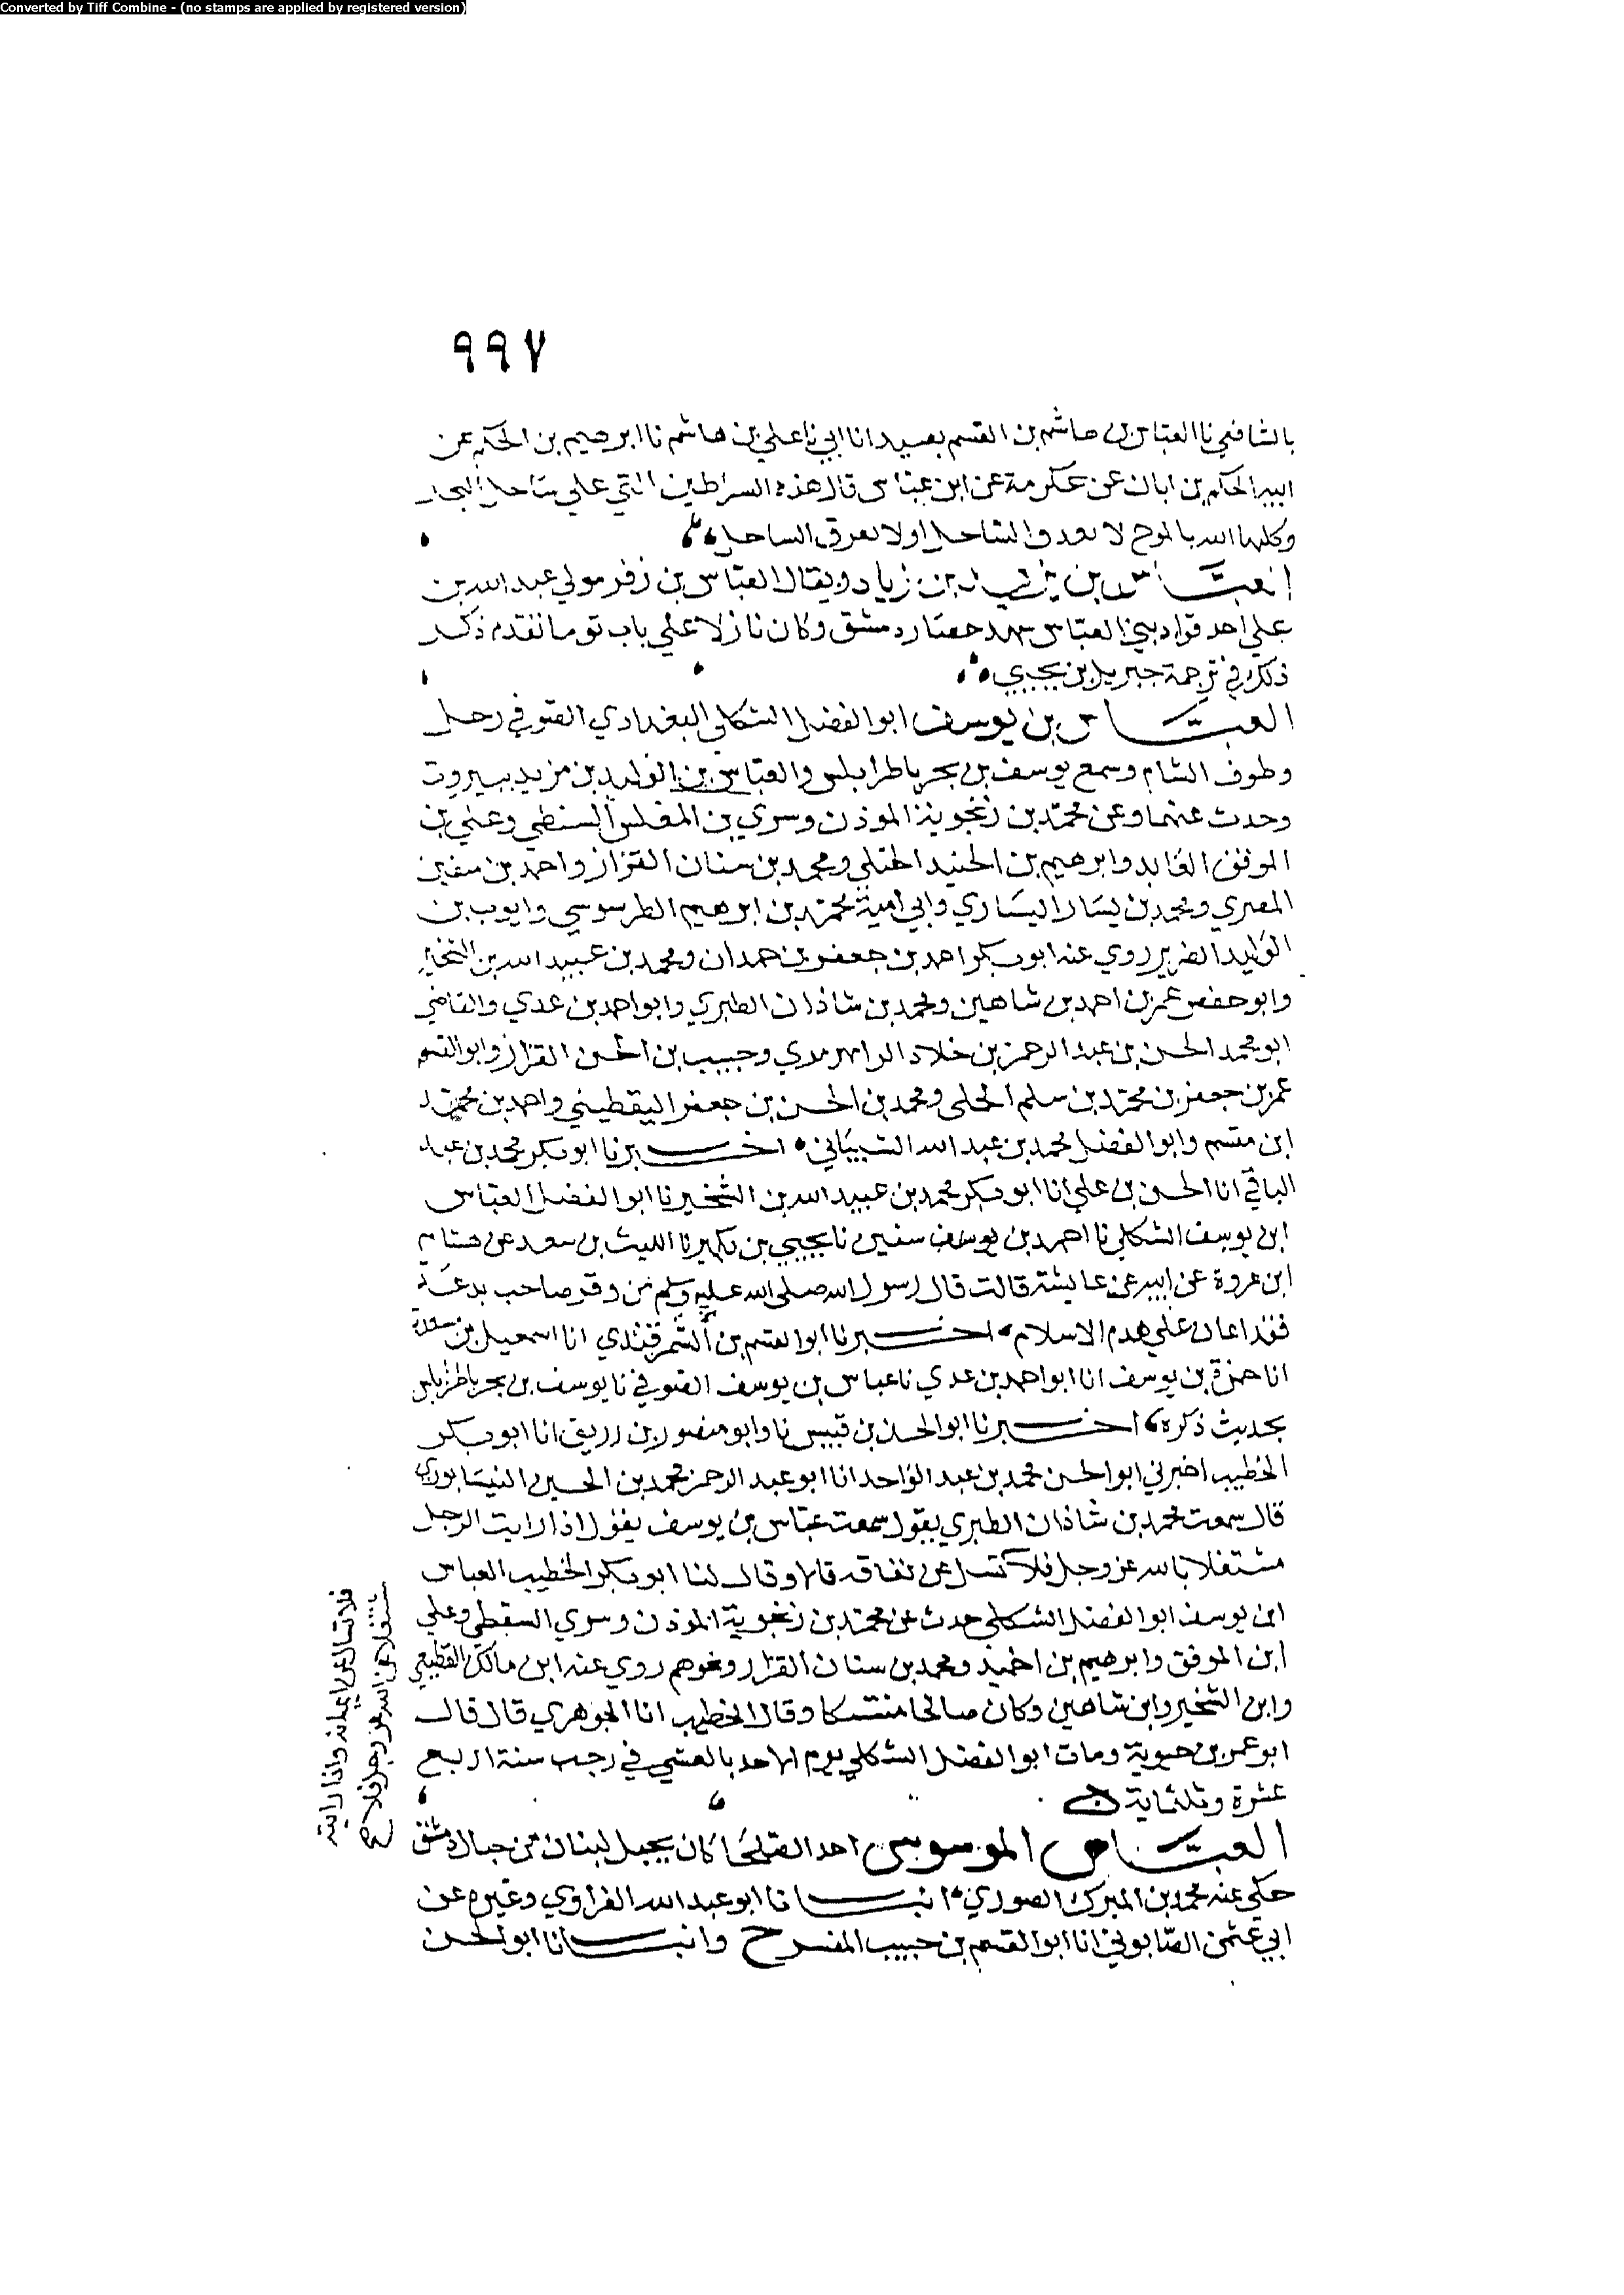 Converted by Tiff Combine - (no stamps are applied by registered version)
٩٩٧
بالشافعي نا العباس بن هاشم بن القسم بصيدا نا ابي نا علي بن هاشم نا ابرهيم بن الحكم عن
ابيه الحكم بن ابان عن عكرمة عن ابن عباس قال هذه السراطين التي علي ساحل البحار
وكلها الله بالموج لا الساحل اولا يعرق الساحل
العباس بن بن زياد ويقال العباس بن زفر مولي عبد الله بن
علي احد قواد بني العباس حصار دمشق وكان نازلا علي باب توما تقدم ذكر
ذلك في ترجمة جبريل بن يحيي
العباس بن يوسف ابو الفضل الشكلي البغدادي الصوفي رحل
وطوف الشام وسمع يوسف بن بحر باطرابلس والعباس بن الوليد بن مزيد ببيروت
وحدث عنهما وعن محمد بن زنجوية الموذن وسري بن المغلس السقطي وعلي بن
الموفق العابد وابرهيم بن الجنيد الختلي ومحمد بن سنان القزاز واحمد بن سفين
المصري ومحمد بن يسار اليساري وابي امية محمد بن ابرهيم الطرسوسي وايوب بن
الوليد الضرير روي عنه ابو بكر احمد بن جعفر بن حمدان ومحمد بن عبيد الله بن الشخير
وابو حفص عمر بن احمد بن شاهين ومحمد بن شاذان الطبري وابو احمد بن عدي والقاضي
ابو محمد الحسن بن عبد الرحمن بن خلاد الرامهرمزي وحبيب بن الحسن القزاز وابو القسم
عمر بن جعفر بن محمد بن سلم الختلي ومحمد بن الحسن بن جعفر اليقطيني واحمد بن محمد
ابن مقسم وابو الفضل محمد بن عبد الله الشيباني اخبرنا ابو بكر محمد بن عبد
الباقي انا الحسن بن علي انا ابو بكر محمد بن عبيد الله بن الشخير نا ابو الفضل العباس
ابن يوسف الشكلي نا احمد بن يوسف سفين نا يحيي بن بكير نا الليث بن سعد عن هشام
ابن عروة عن ابيه عن عايشة قالت قال رسول الله صلى الله عليه وسلم من وقر صاحب بدعة
فقد اعان علي هدم الاسلام اخبرنا ابو القسم بن السمرقندي انا اسمعيل بن مسعدة
انا حمزة بن يوسف انا ابو احمد بن عدي نا عباس بن يوسف الصوفي نا يوسف بن بحر باطرابلس
بحديث ذكره اخبرنا ابو الحسن بن قبيس نا وابو منصور بن زريق انا ابو بكر
الخطيب اخبرني ابو الحسن محمد بن عبد الواحد انا ابو عبد الرحمن محمد بن الحسين النيسابوري
قال سمعت محمد بن شاذان الطبري يقول سمعت عباس بن يوسف يقول اذا رايت الرجل
مشتغلا بالله عز وجل فلا تسل عن نفاقه قال وقال لنا ابو بكر الخطيب العباس
ابن يوسف ابو الفضل الشكلي حدث عن محمد بن زنجوية الموذن وسري السقطي وعلي
ابن الموفق وابرهيم بن الجنيد ومحمد بن سنان القزاز ونحوهم روي عنه ابن مالك القطيعي
وابن الشخير وابن شاهين وكان صالحا متنسكا وقال الخطيب انا الجوهري قال قال
ابو عمر بن حيوية ومات ابو الفضل الشكلي يوم الاحد بالعشي في رجب سنة اربع
عشرة وثلثماية
العباس الموسوس احد العقلا كان بجبل لبنان من جبال دمشق
حكي عنه محمد بن المبرك الصوري انبانا ابو عبد الله الفراوي وغيره عن
ابي عثمن الصابوني انا ابو القسم بن حبيب المفسر ح وانبانا ابو الحسن
فلا تسال عن ايمانه واذا رايته
مشتغلا عن الله عز وجل فلا صح